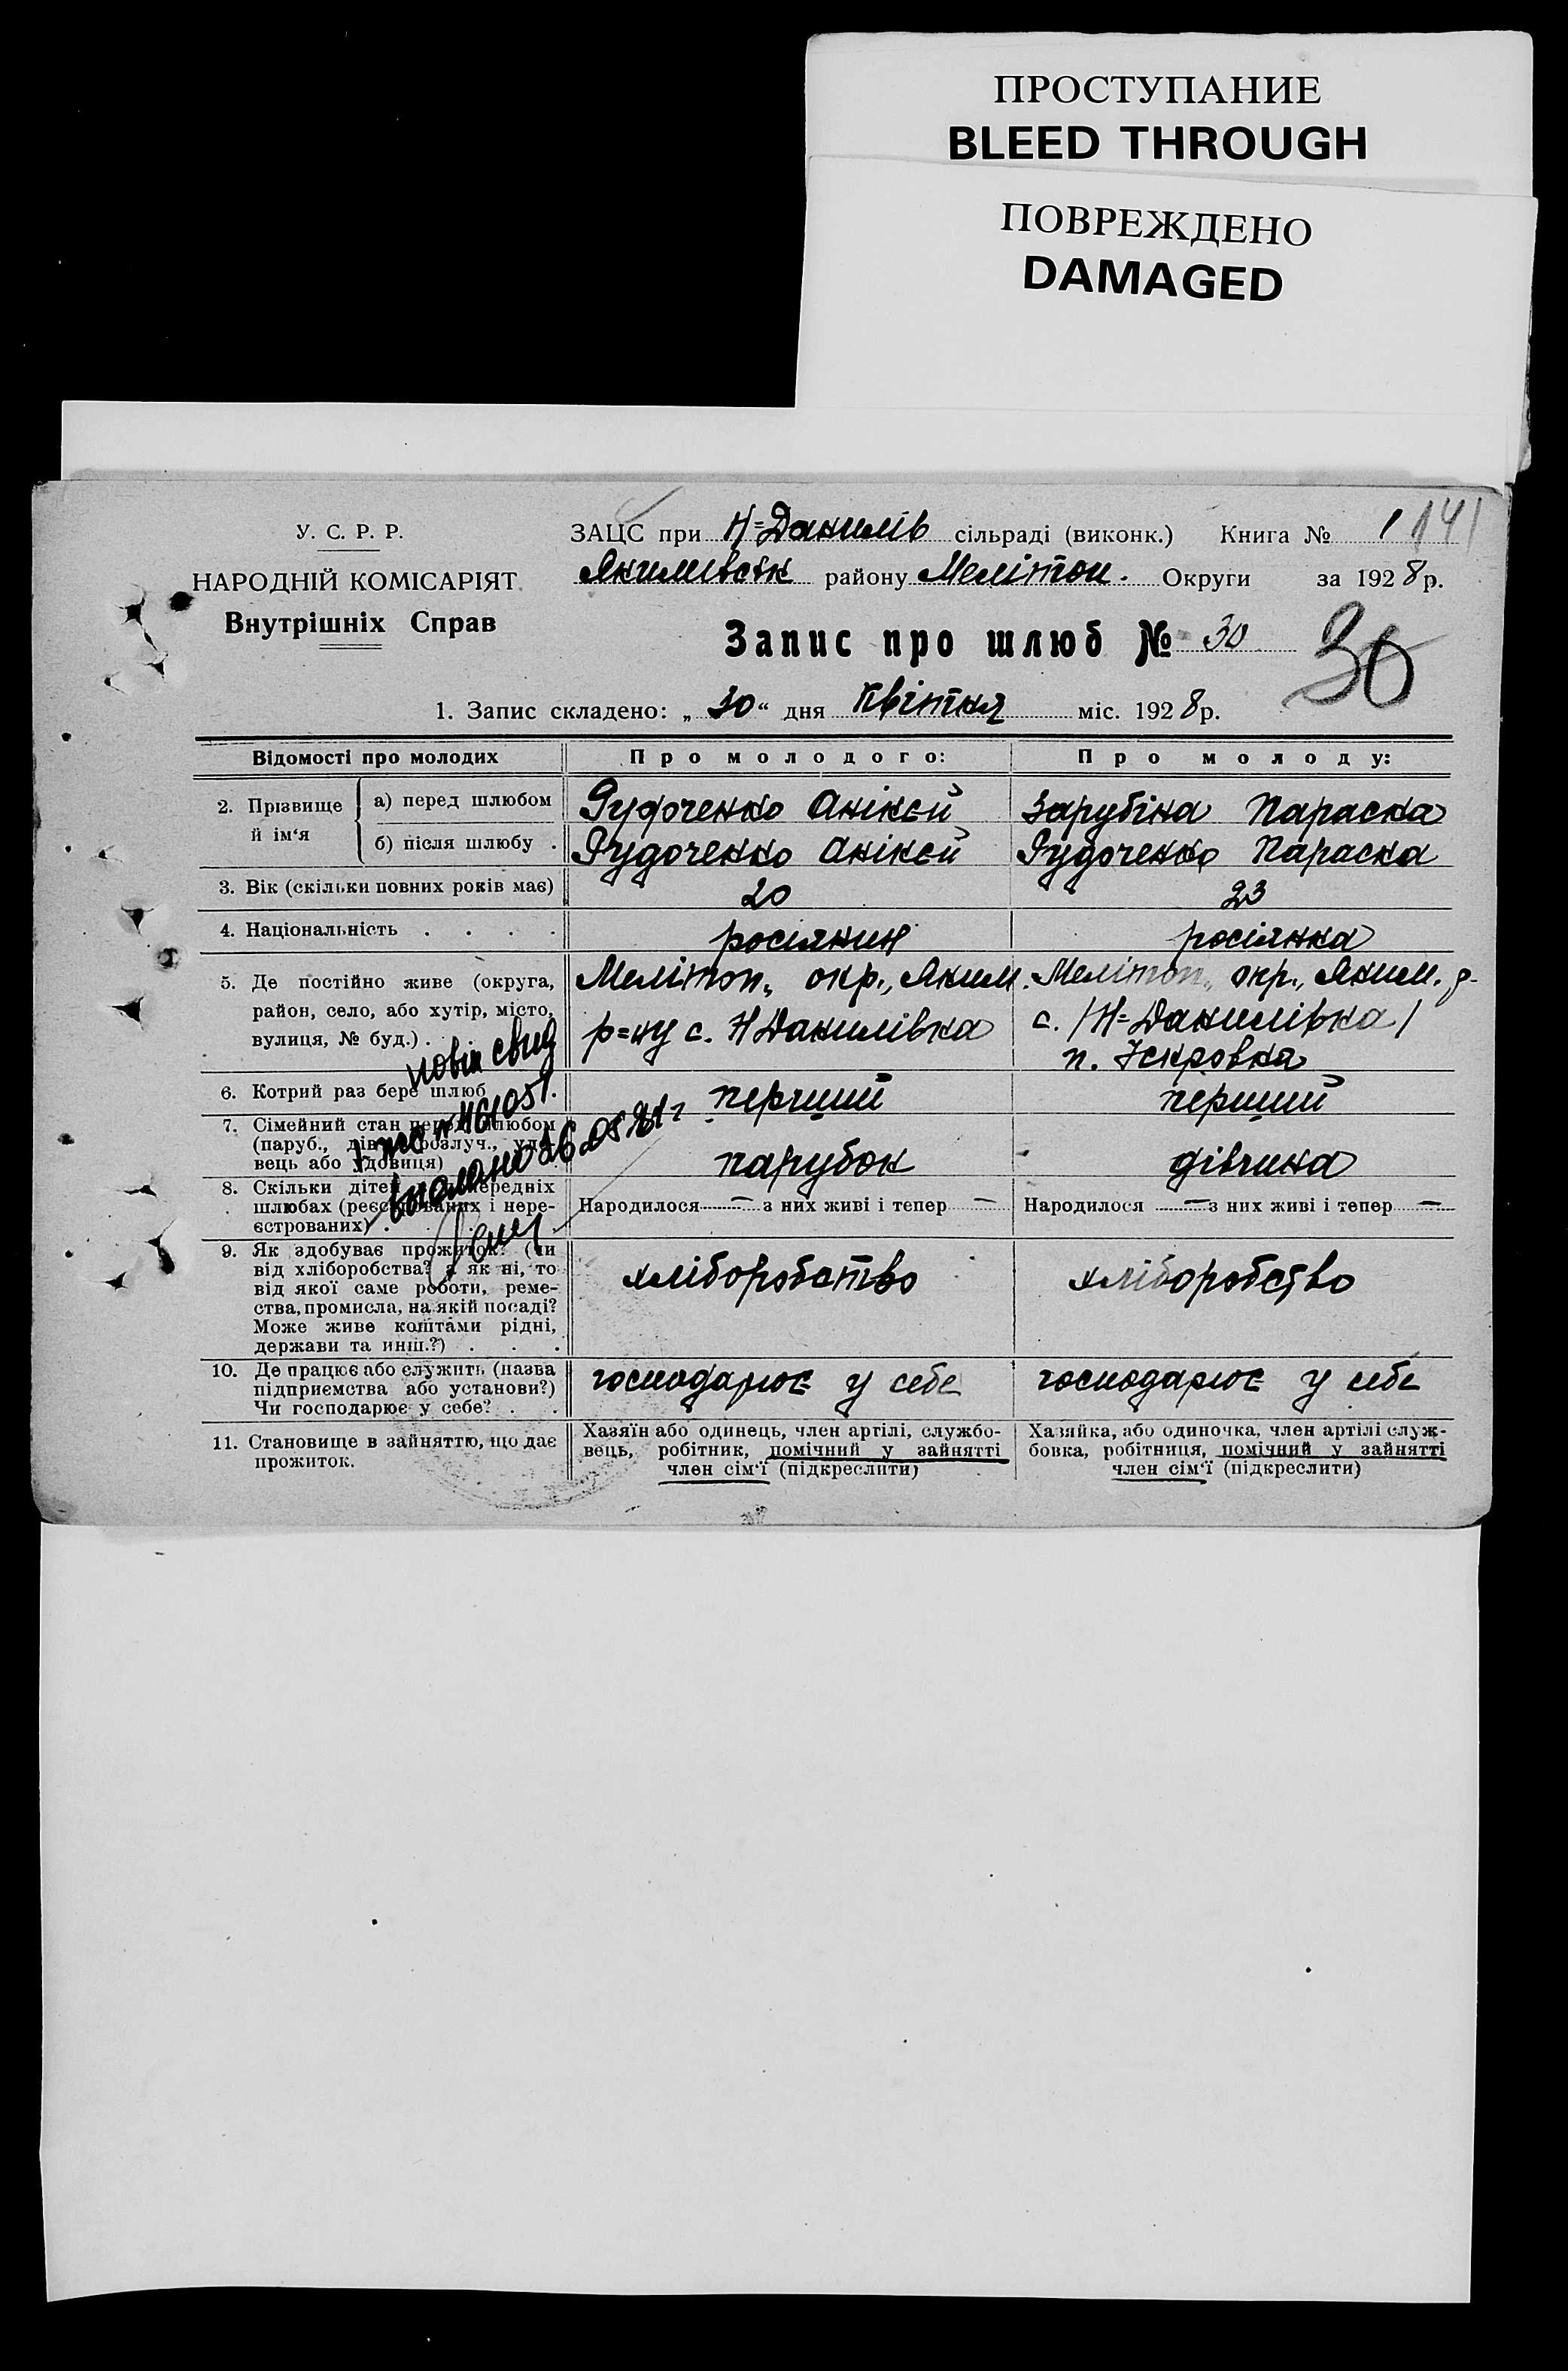 ПРОСТУПАНИЕ
BLEED THROUGH
ПОВРЕЖДЕНО
DAMAGED
У. С. Р. Р.
НАРОДНІЙ КОМІСАРІЯТ
Внутрішніх Справ
ЗАЦС при Н=Данилів сільраді (виконк.) Книга № 1 141
Якимівськ району Мелітоп. Округи за 1928 р.
Запис про шлюб № 30 30
1. Запис складено: „30“ дня квітня міс. 1928 р.
Відомості про молодих Про молодого: Про молоду:
2. Прізвище й ім‘я
а) перед шлюбом Рудоченко Анікей Зарубіна Параска
б) після шлюбу . Рудоченко Анікей Рудоченко Параска
3. Вік (скільки повних років має) 20 23
4. Національність . . . . росіянин росіянка
5. Де постійно живе (округа, Мелітоп., окр., Яким. Мелітоп., окр., Яким. р-
район, село, або хутір, місто, р=ну с. Н Данилівка с. /Н=Данилівка/
вулиця, № буд.) . п. Іскровка
6. Котрий раз бере шлюб перший перший
7. Сімейний стан перед шлюбом
(паруб., дівч., розлуч., уда-
вець або удовиця) парубок дівчина
8. Скільки дітей попередніх
шлюбах (реєстрованих і нере- Народилося — з них живі і тепер — Народилося — з них живі і тепер —
єстрованих) .
9. Як здобуває прожиток? (чи
від хліборобства? а як ні, то хліборобство хліборобство
від якої саме роботи, реме-
ства, промисла, на якій посаді?
Може живе коштами рідні,
держави та инш.?) . . .
10. Де працює або служить (назва господарює у себе господарює у себе
підприємства або установи?)
Чи господарює у себе? . .
11. Становище в зайняттю, що дає
прожиток.
Хазяїн або одинець, член артілі, службо-
вець, робітник, помічний у зайнятті
член сім‘ї (підкреслити)
Хазяйка, або одиночка, член артілі служ-
бовка, робітниця, помічний у зайнятті
член сім‘ї (підкреслити)